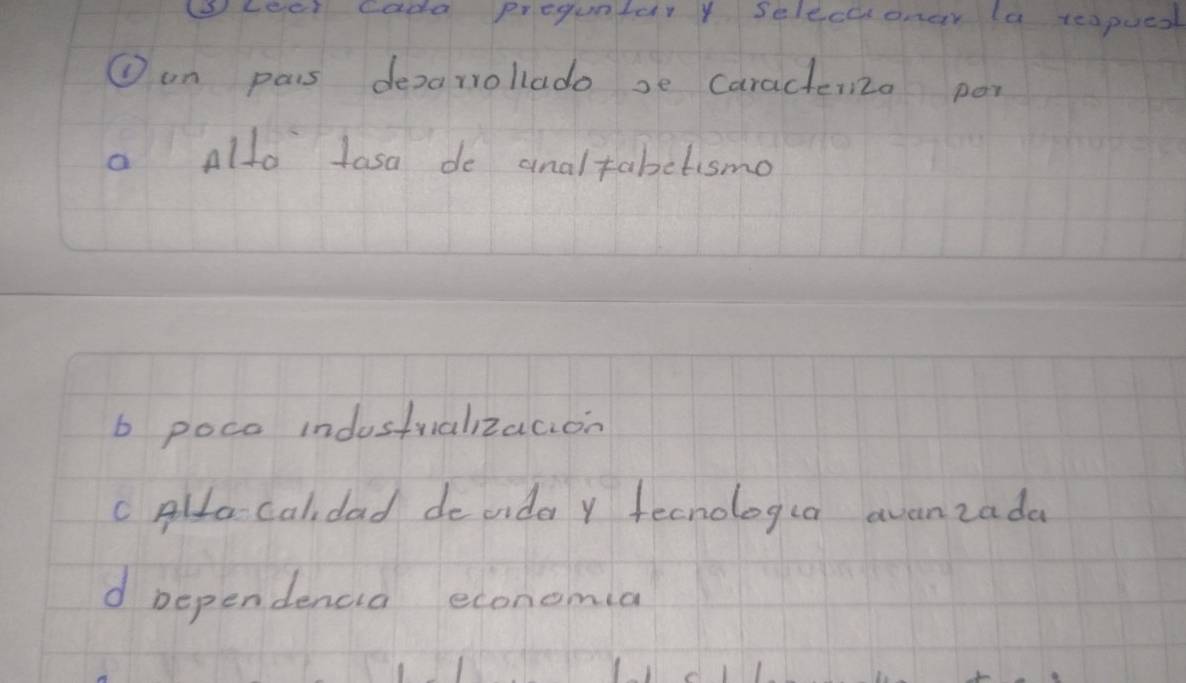 ③ Leer cada preguntar y seleccionar la respuest
① un pais desarrollado se caracteriza por
a Alta tasa de analfabetismo
b poca industrialización
c Alta calidad de vida y tecnologia avanzada
d Dependencia economia